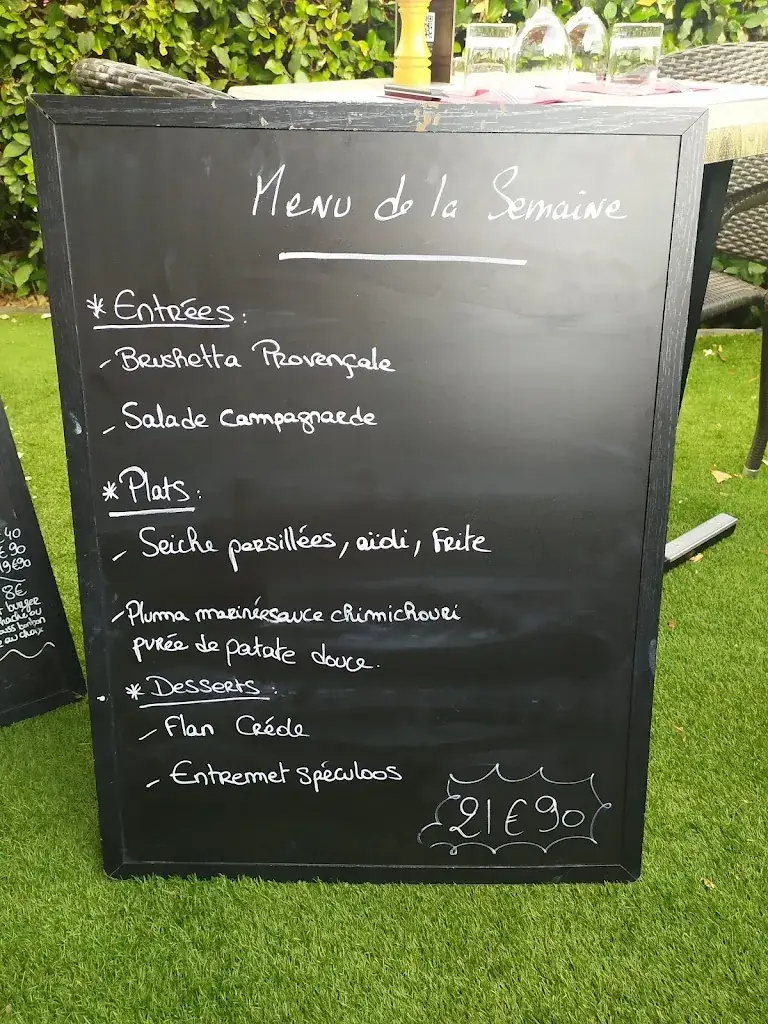 Menu de la Semaine
* Entrées :
- Brushetta Provençale
- Salade campagnarde
* Plats :
- Seiche persillées, aïdi, Frite
- Pluma marinér sauce chimichouri
purée de patate douce.
* Desserts :
- Flan Créde
- Entremet spéculoos
21€90
€40
€90
19€90
8€
burger
haché ou
au choix